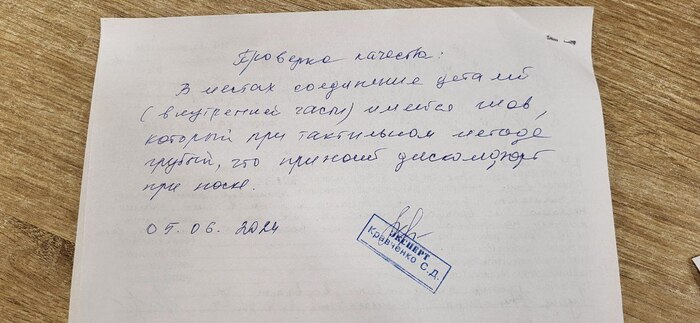 Проверка качества:
В местах соединение деталей
(внутренней часы) имеется шов,
который при тактильном методе
грубый, что приносит дискомфорт
при носке.
05.06.2024
ЭКСПЕРТ
Кравченко С.Д.